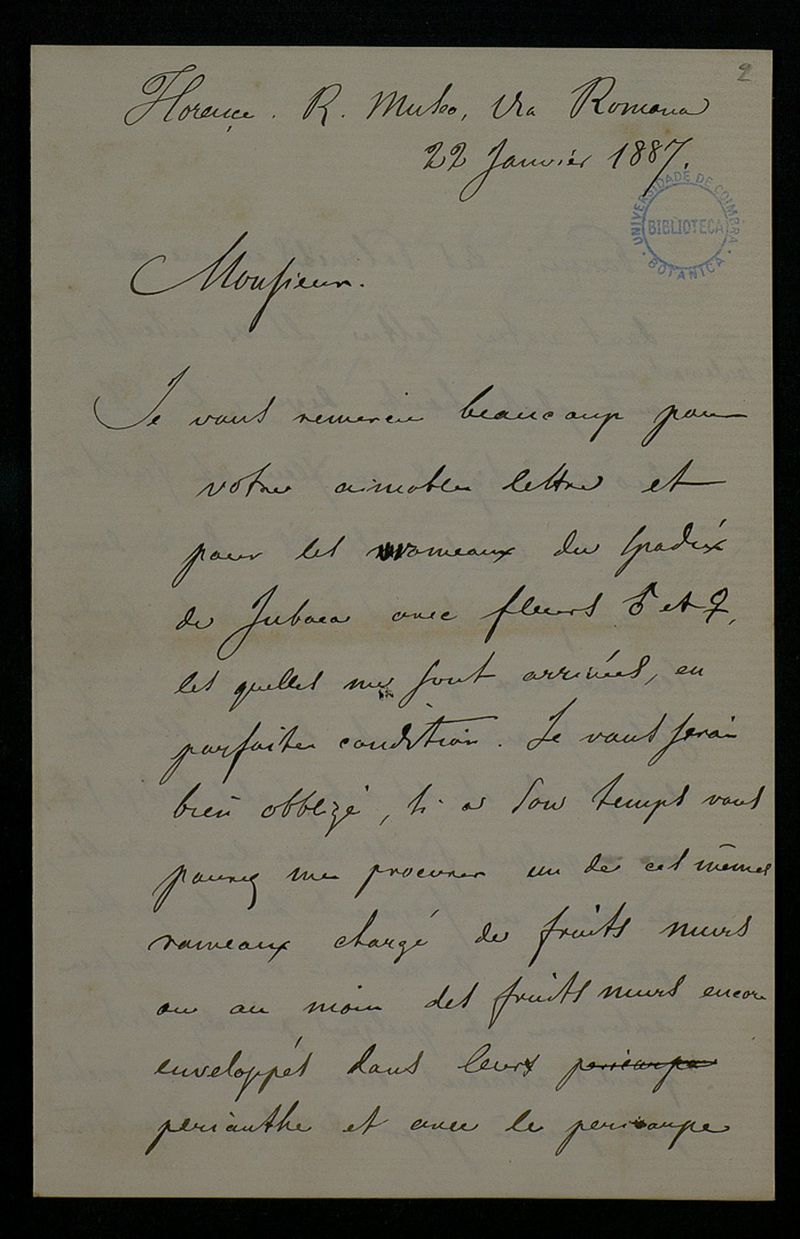 2
Florence. R. Museo, Via Romana
22 Janvier 1887.
UNIVERSIDADE DE COIMBRA
BIBLIOTECA
BOTANICA
Monsieur.
Je vous remercie beaucoup pour
votre aimable lettre et
pour les rameaux du spadix
de Jubaea avec fleurs ♂ et ♀,
les quelles me sont arrivées, en
parfaite condition. Je vous serai
bien obbligé, si a son temps vous
pourez me procurer un de ces mêmes
rameaux chargé de fruits murs
ou au moin des fruits murs encore
enveloppés dans leurs pericarpe
perianthe et avec le pericarpe